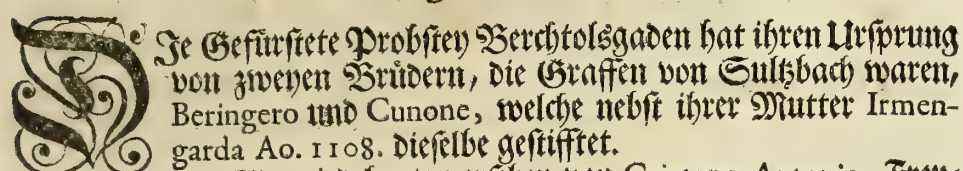 DIe Gefürstete Probstey Berchtolsgaden hat ihren Ursprung
von zweyen Brüdern, die Graffen von Sultzbach waren,
Beringero und Cunone, welche nebst ihrer Mutter Irmen-
garda Ao. 1108. dieselbe gestifftet.